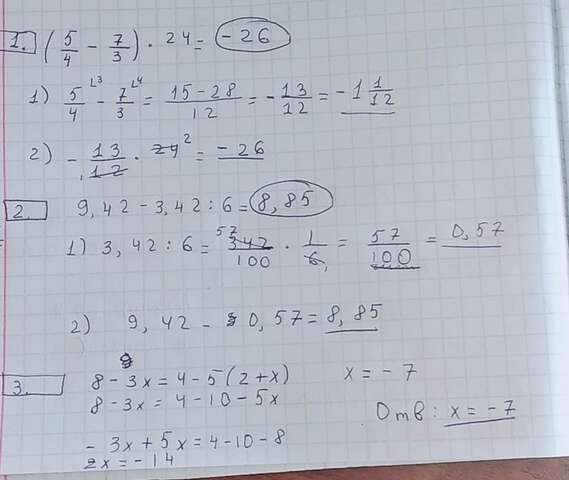 1. (5/4 - 7/3) · 24 = -26
1) 5/4 ∟3 - 7/3 ∟4 = 15-28/12 = -13/12 = -1 1/12
2) -13/12 · 24 2 = -26
2. 9,42 - 3,42 : 6 = 8,85
1) 3,42 : 6 = 57 342/100 · 1/6 1 = 57/100 = 0,57
2) 9,42 - 0,57 = 8,85
3. 8 - 3x = 4 - 5(2+x) x = -7
8 - 3x = 4 - 10 - 5x
Отв: x = -7
- 3x + 5x = 4 - 10 - 8
2x = -14